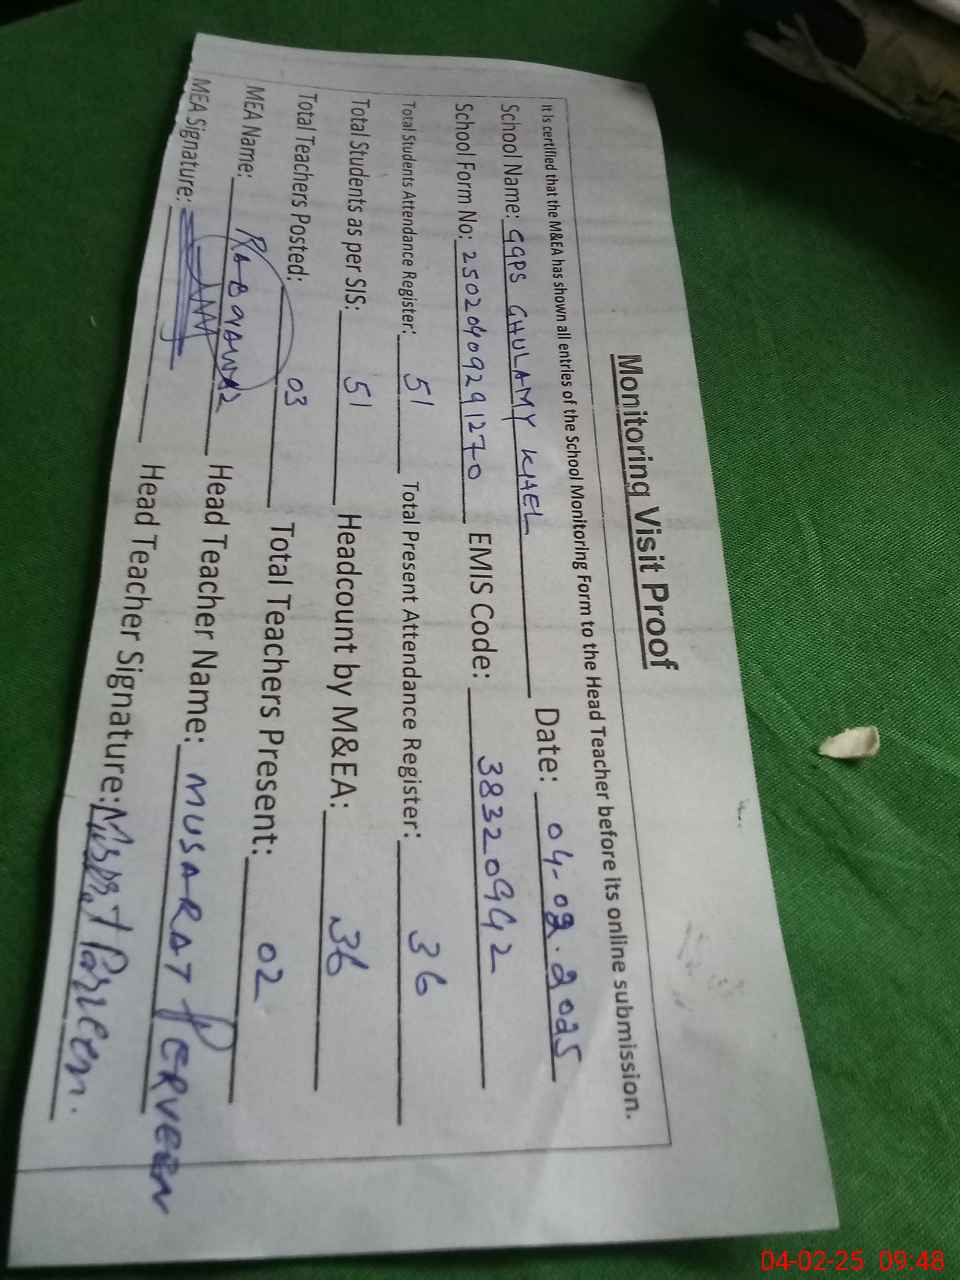 Monitoring Visit Proof
It is certified that the M&EA has shown all entries of the School Monitoring Form to the Head Teacher before its online submission.
School Name: GGPS GHULAMY KHEL Date: 04-02-2025
School Form No: 2502040929 1270 EMIS Code: 38320942
Total Students Attendance Register: 51 Total Present Attendance Register: 36
Total Students as per SIS: 51 Headcount by M&EA: 36
Total Teachers Posted: 03 Total Teachers Present: 02
MEA Name: Head Teacher Name: MUSARAT PERVEEN
MEA Signature: Head Teacher Signature: Musarat Parveen.
04-02-25 09:48